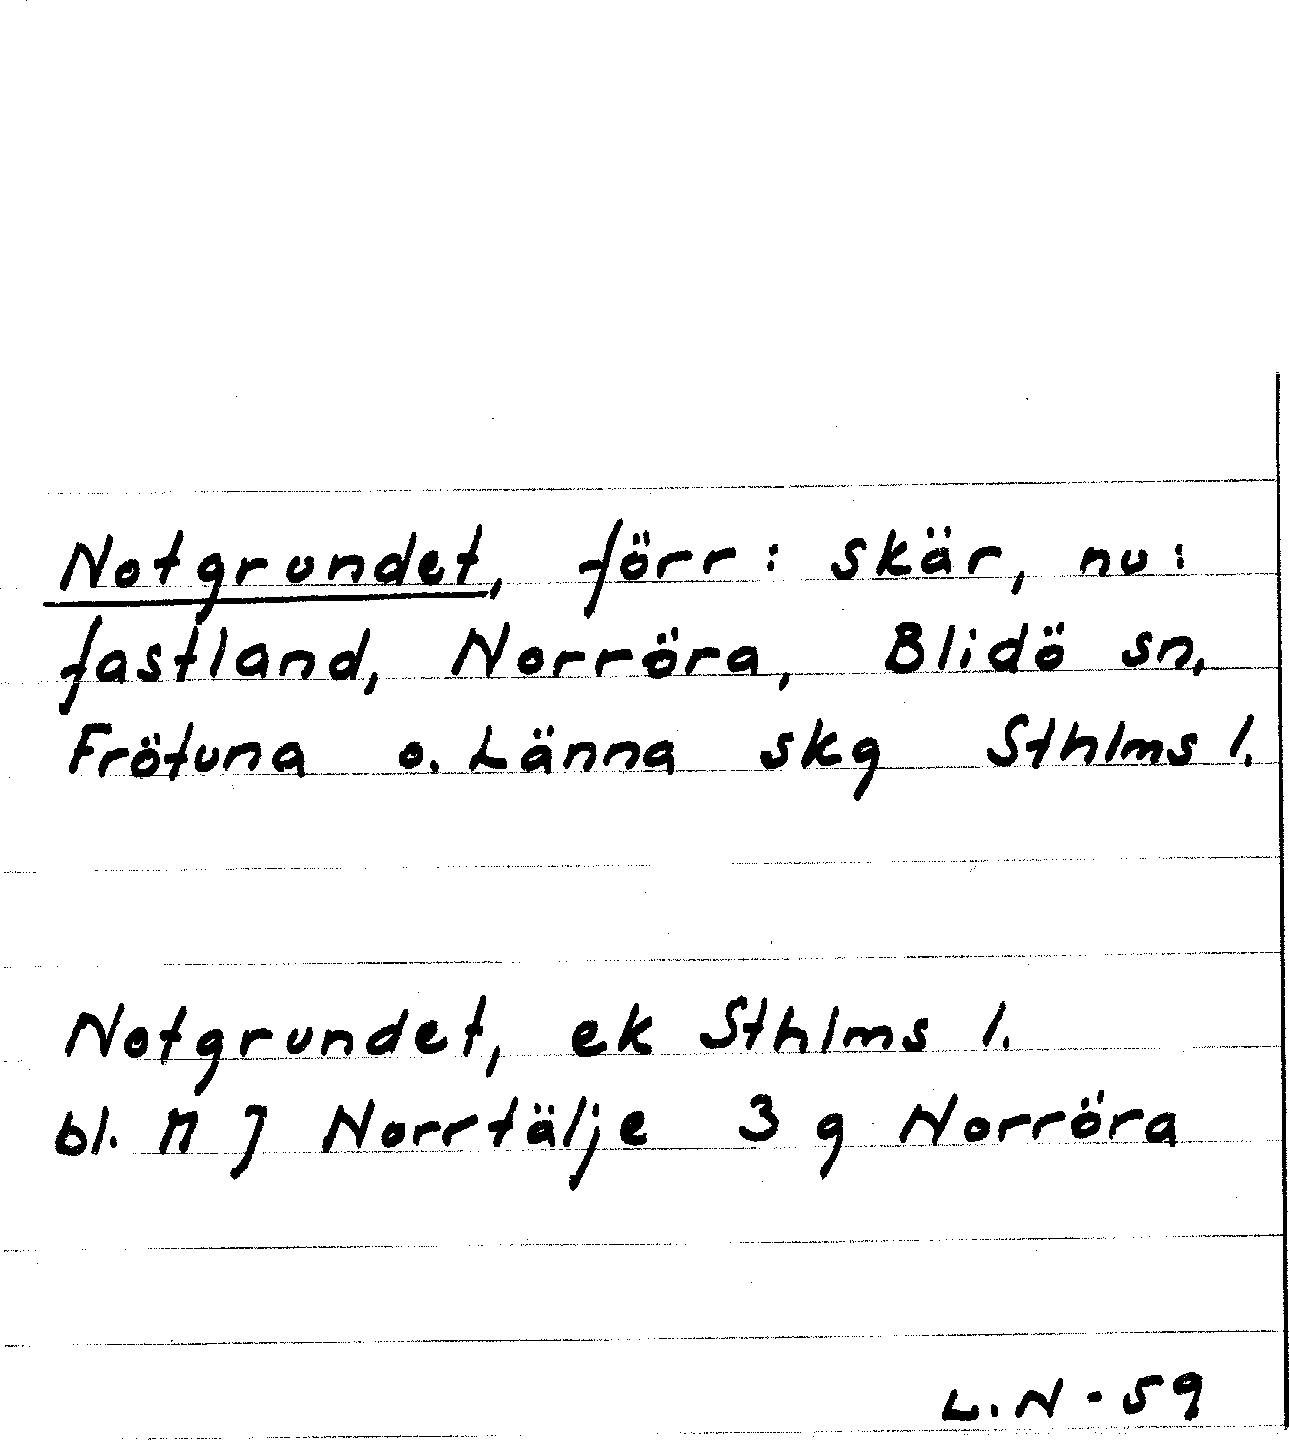 Notgrundet, förr: skär, nu:
fastland, Norröra, Blidö sn,
Frötuna o. Länna skg Sthlms l.
Notgrundet, ek Sthlms l.
bl. N J Norrtälje 3 g Norröra
L.N - 59